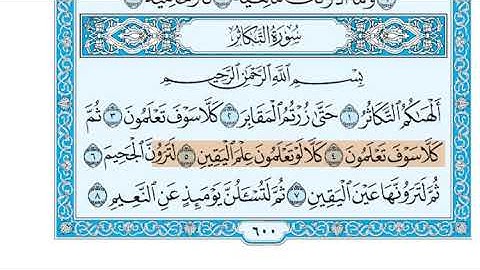 وما أدرىك ما هيه نار حامية
سورة التكاثر
بسم الله الرحمن الرحيم
ألهىكم التكاثر ١ حتى زرتم المقابر ٢ كلا سوف تعلمون ٣ ثم
كلا سوف تعلمون ٤ كلا لو تعلمون علم اليقين ٥ لترون الجحيم ٦
ثم لترونها عين اليقين ٧ ثم لتسئلن يومئذ عن النعيم ٨
٦٠٠